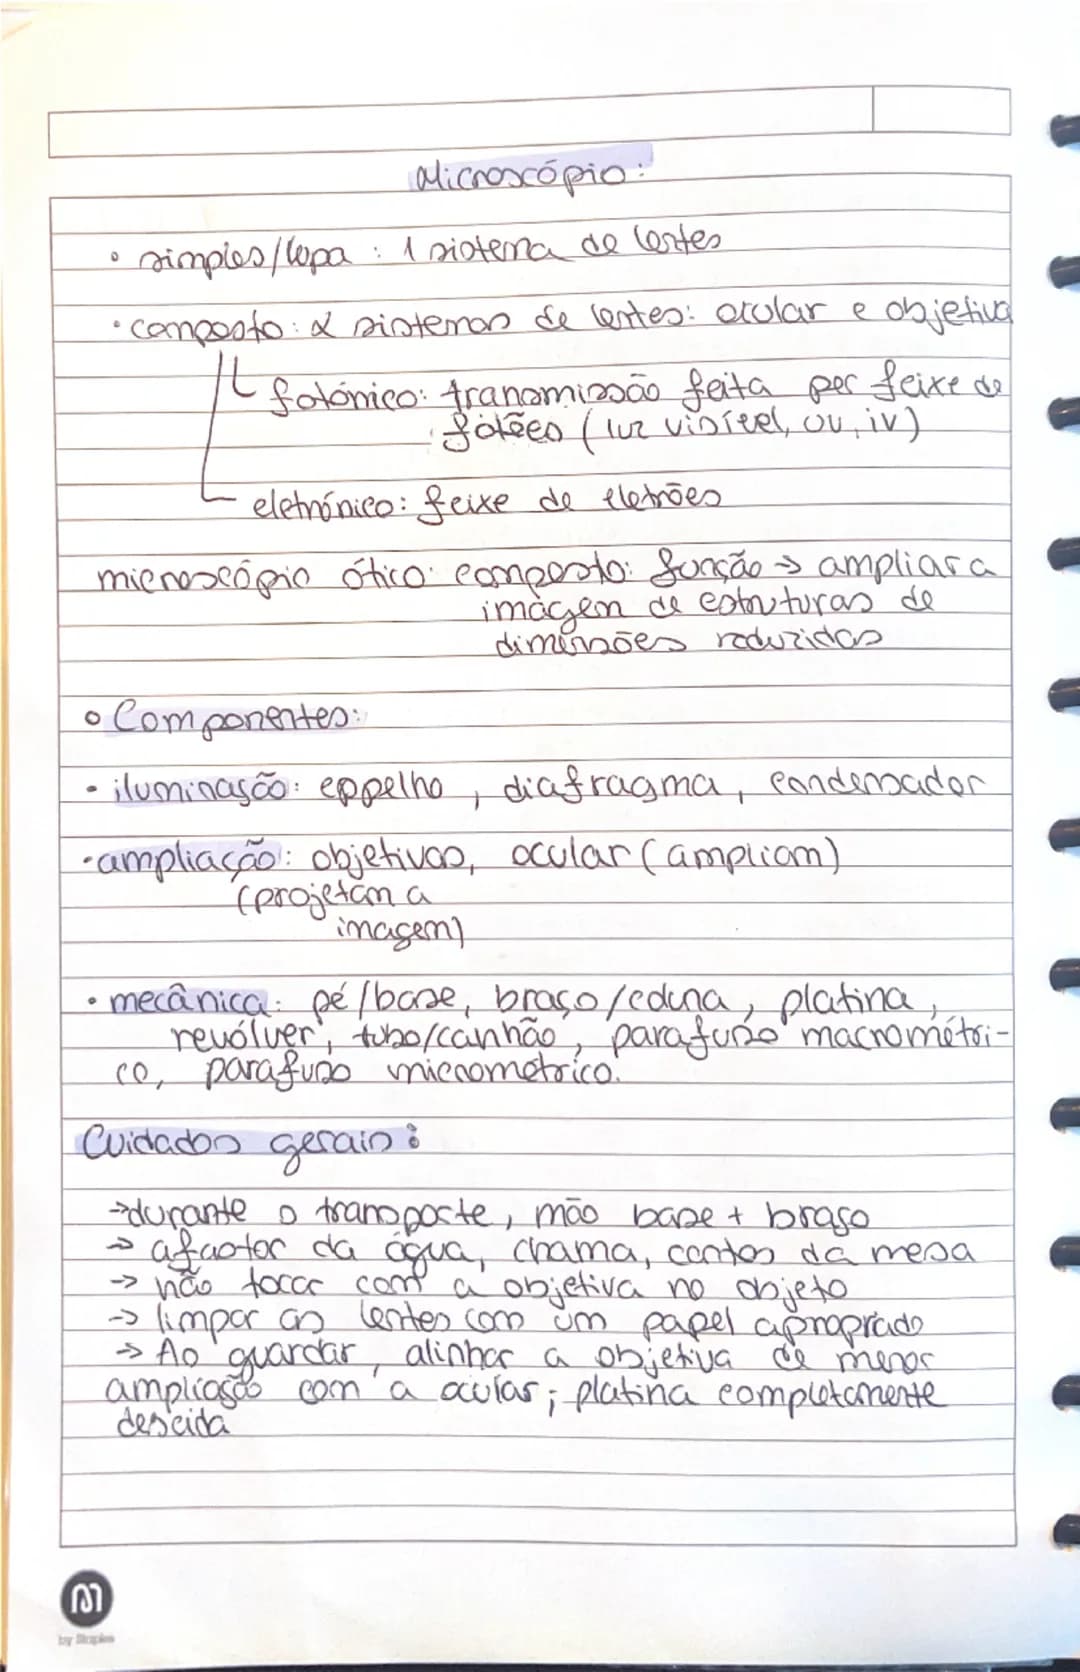 Microscópio:
• simples/lupa : 1 sistema de lentes
• composto: 2 sistemas de lentes: ocular e objetiva
fotónico: transmissão feita por feixe de
fotões (luz visível, uv, iv)
eletrónico: feixe de eletrões
microscópio ótico composto: função → ampliar a
imagem de estruturas de
dimensões reduzidas
• Componentes:
• iluminação: espelho, diafragma, condensador
• ampliação: objetivas, ocular (ampliam)
(projetam a
imagem)
• mecânica: pé/base, braço/coluna, platina,
revólver, tubo/canhão, parafuso macrométri-
co, parafuso micrometrico.
Cuidados gerais:
→ durante o transporte, mão base + braço
→ afastar da água, chama, cantos da mesa
→ não tocar com a objetiva no objeto
→ limpar as lentes com um papel apropriado
→ Ao guardar, alinhar a objetiva de menor
ampliação com a ocular; platina completamente
descida
M
by Staples